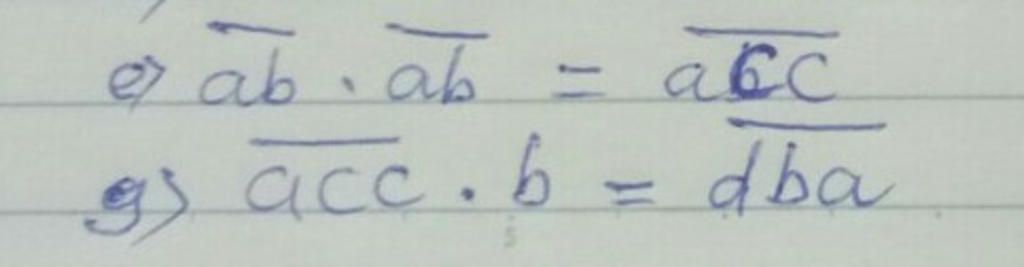 e) $\overline{ab} \cdot \overline{ab} = \overline{acc}$
g) $\overline{acc} \cdot b = \overline{dba}$